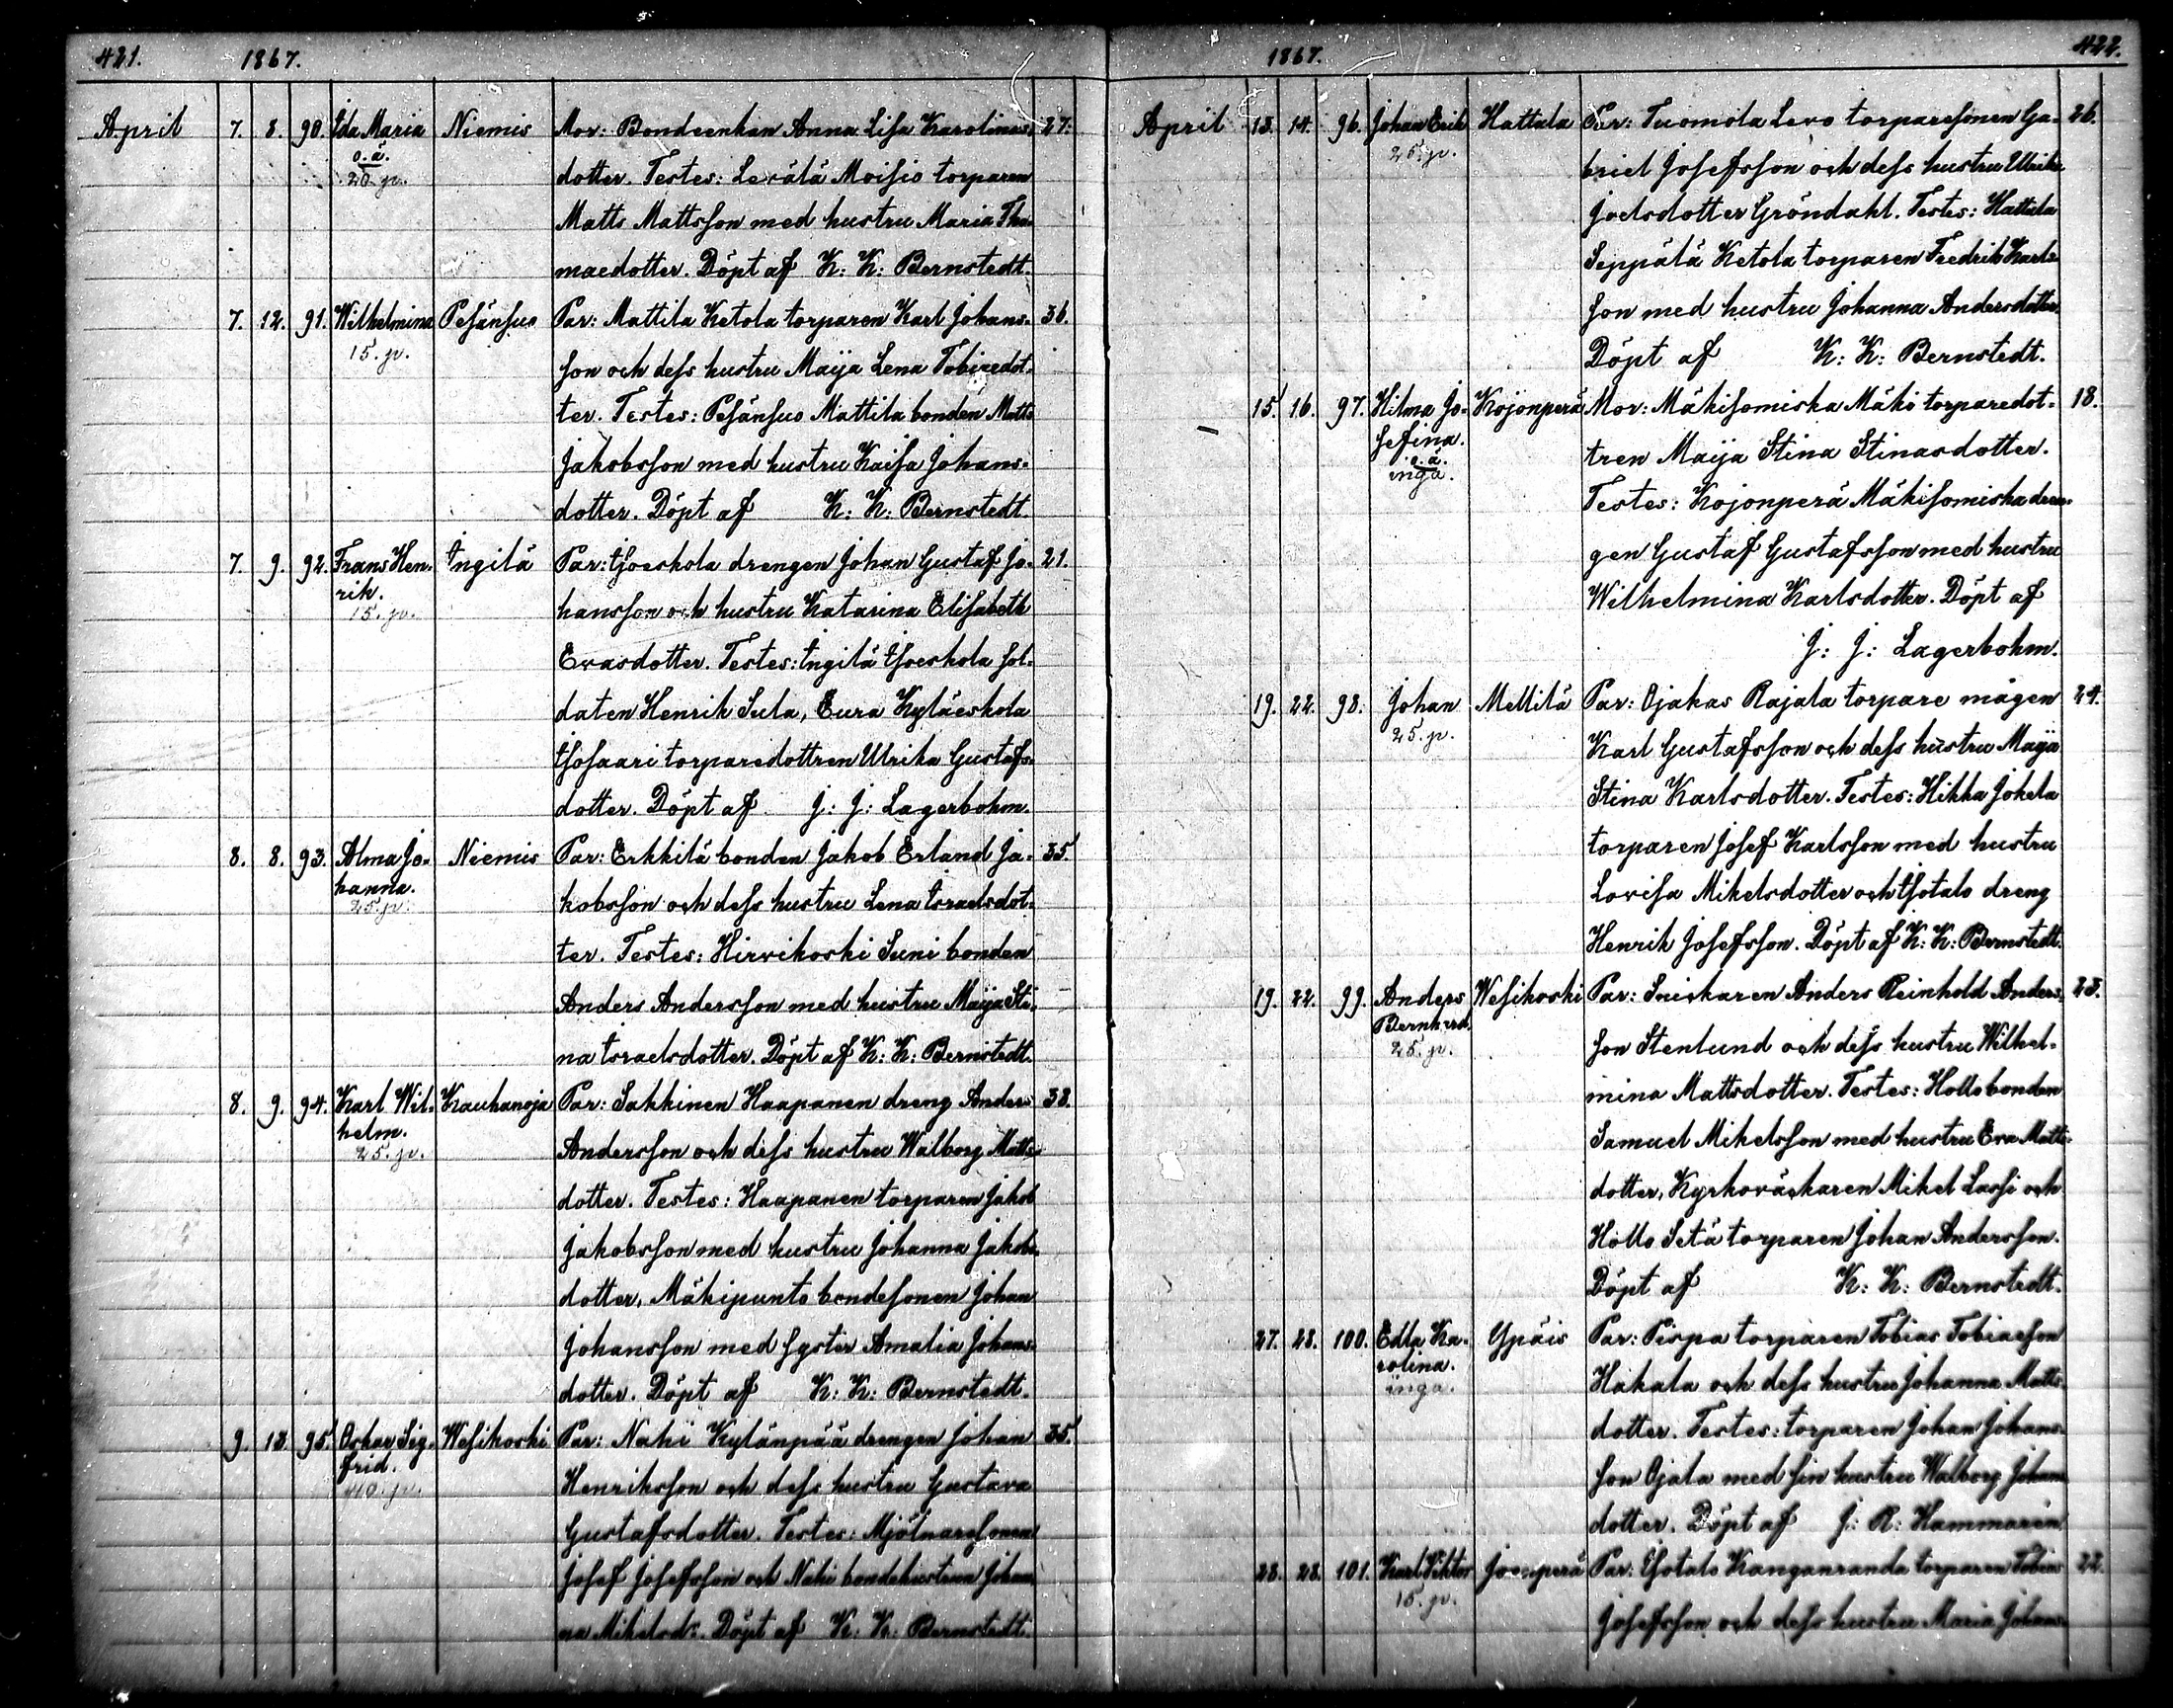 421. 1867.
April 7. 8. 90. Ida Maria Niemis Mor: Bondeenkan Anna Lisa Karolinas- 27.
o.ä. dotter. Testes: Levälä Moisio torparen
20. p. Matts Mattsson med hustru Maria Tho-
maedotter. Döpt af K: K: Bernstedt.
7. 12. 91. Wilhelmina Pesänsuo Par: Mattila Ketola torparen Karl Johans- 36.
15. p. son och dess hustru Maija Lena Tobiaedot-
ter. Testes: Pesänsuo Mattila bonden Matts
Jakobsson med hustru Kaisa Johans-
dotter. Döpt af K: K: Bernstedt.
7. 9. 92. Frans Hen- Ingilä Par: Isoeskola drengen Johan Gustaf Jo- 21.
rik. hansson och hustru Katarina Elisabeth
15. p. Evasdotter. Testes: Ingilä Isoeskola sol-
daten Henrik Sula, Eura Kyläeskola
Isosaari torparedottren Ulrika Gustafs-
dotter. Döpt af J: J: Lagerbohm.
8. 8. 93. Alma Jo- Niemis Par: Erkkilä bonden Jakob Erland Ja- 35.
hanna. kobsson och dess hustru Lena Israelsdot-
25. p. ter. Testes: Hirvikoski Suni bonden
Anders Andersson med hustru Maija Sti-
na Israelsdotter. Döpt af K: K: Bernstedt.
8. 9. 94. Karl Wil- Kauhanoja Par: Sakkinen Haapanen dreng Anders 38.
helm. Andersson och dess hustru Walborg Matts-
25. p. dotter. Testes: Haapanen torparen Jakob
Jakobsson med hustru Johanna Jakobs-
dotter, Mäkipunto bondesonen Johan
Johansson med syster Amalia Johans-
dotter. Döpt af K: K: Bernstedt.
9. 13. 95. Oskar Sig- Wesikoski Par: Nahi Kylänpää drengen Johan 35.
frid. Henriksson och dess hustru Gustava
40. p. Gustafsdotter. Testes: Mjölnaresonen
Josef Josefsson och Nahi bondehustrun Johan-
na Mikelsdr. Döpt af K: K: Bernstedt.
1867. 422.
April 13. 14. 96. Johan Erik Hattula Par: Tuomola Levo torparesonen Ga- 26.
25. p. briel Josefsson och dess hustru Ulrika
Joelsdotter Gröndahl. Testes: Hattula
Seppälä Ketola torparen Fredrik Karls-
son med hustru Johanna Andersdotter.
Döpt af K: K: Bernstedt.
15. 16. 97. Hilma Jo- Kojonperä Mor: Mäkisomiska Mäki torparedot- 18.
sefina. tren Maija Stina Stinasdotter.
o.ä. inga. Testes: Kojonperä Mäkisomiska dren-
gen Gustaf Gustafsson med hustru
Wilhelmina Karlsdotter. Döpt af
J: J: Lagerbohm.
19. 22. 98. Johan Mellilä Par: Ojakas Rajala torpare mågen 24.
25. p. Karl Gustafsson och dess hustru Maija
Stina Karlsdotter. Testes: Hikka Jokela
torparen Josef Karlsson med hustru
Lovisa Mikelsdotter och Isotalo dreng
Henrik Josefsson. Döpt af K: K: Bernstedt.
19. 22. 99. Anders Wesikoski Par: Snickaren Anders Reinhold Anders- 23.
Bernhard. son Stenlund och dess hustru Wilhel-
25. p. mina Mattsdotter. Testes: Hollo bonden
Samuel Mikelsson med hustru Eva Matts-
dotter, Kyrkoväckaren Mikel Lassi och
Hollo Setä torparen Johan Andersson.
Döpt af K: K: Bernstedt.
27. 28. 100. Edla Ka- Ypäis Par: Pispa torparen Tobias Tobiasson
rolina. Hakala och dess hustru Johanna Matts-
inga. dotter. Testes: torparen Johan Johans-
son Ojala med sin hustru Walborg Johans-
dotter. Döpt af J: R: Hammarén.
28. 28. 101. Karl Viktor Joenperä Par: Isotalo Kanganranda torparen Tobias 22.
15. p. Josefsson och dess hustru Maria Johans-